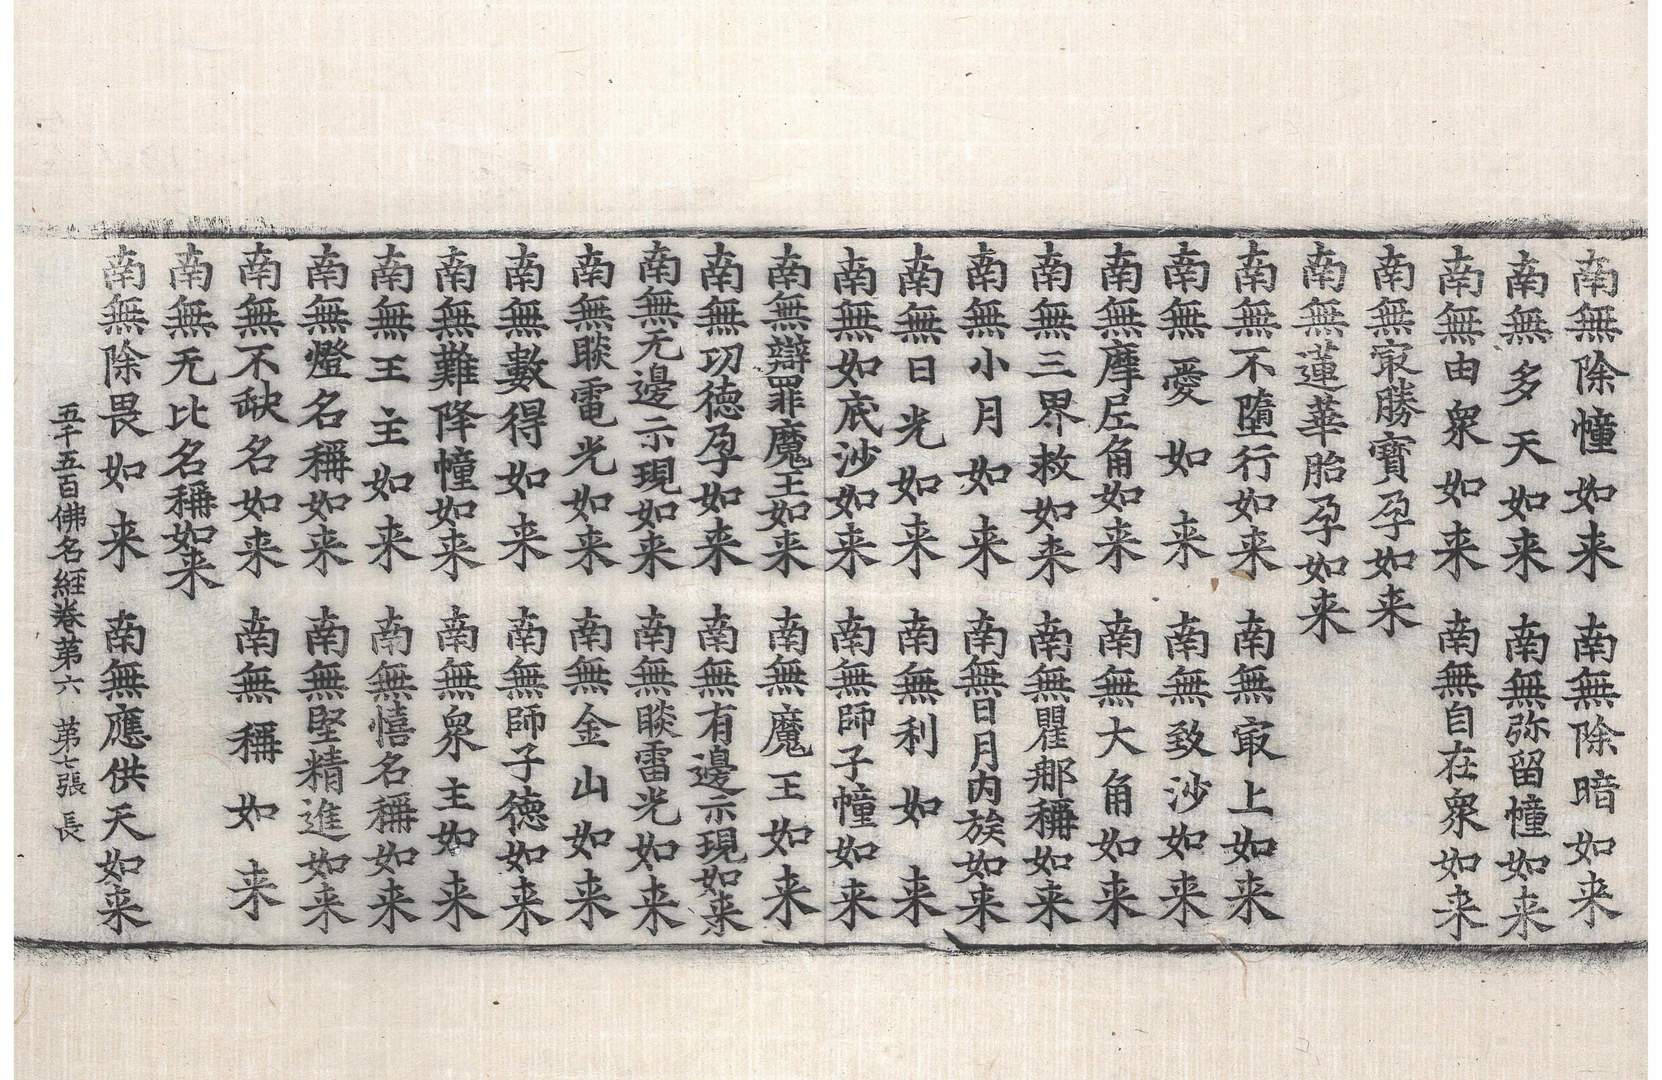 南無除幢如来 南無除暗如来
南無多天如来 南無弥留幢如来
南無由衆如来 南無自在衆如来
南無㝡勝寶孕如来
南無蓮華胎孕如来
南無不墮行如来 南無㝡上如来
南無愛如来 南無致沙如来
南無摩尼角如来 南無大角如来
南無三界救如来 南無瞿郍稱如来
南無小月如来 南無日月内族如来
南無日光如来 南無利如来
南無如底沙如来 南無師子幢如来
南無辯罪魔王如来 南無魔王如来
南無功德孕如来 南無有邊示現如来
南無无邊示現如来 南無睒雷光如来
南無睒電光如来 南無金山如来
南無數得如来 南無師子德如来
南無難降幢如来 南無衆主如来
南無王主如来 南無憘名稱如来
南無燈名稱如来 南無堅精進如来
南無不缺名如来 南無稱如来
南無无比名稱如来
南無除畏如来 南無應供天如来
五千五百佛名經卷第六 第七張 長